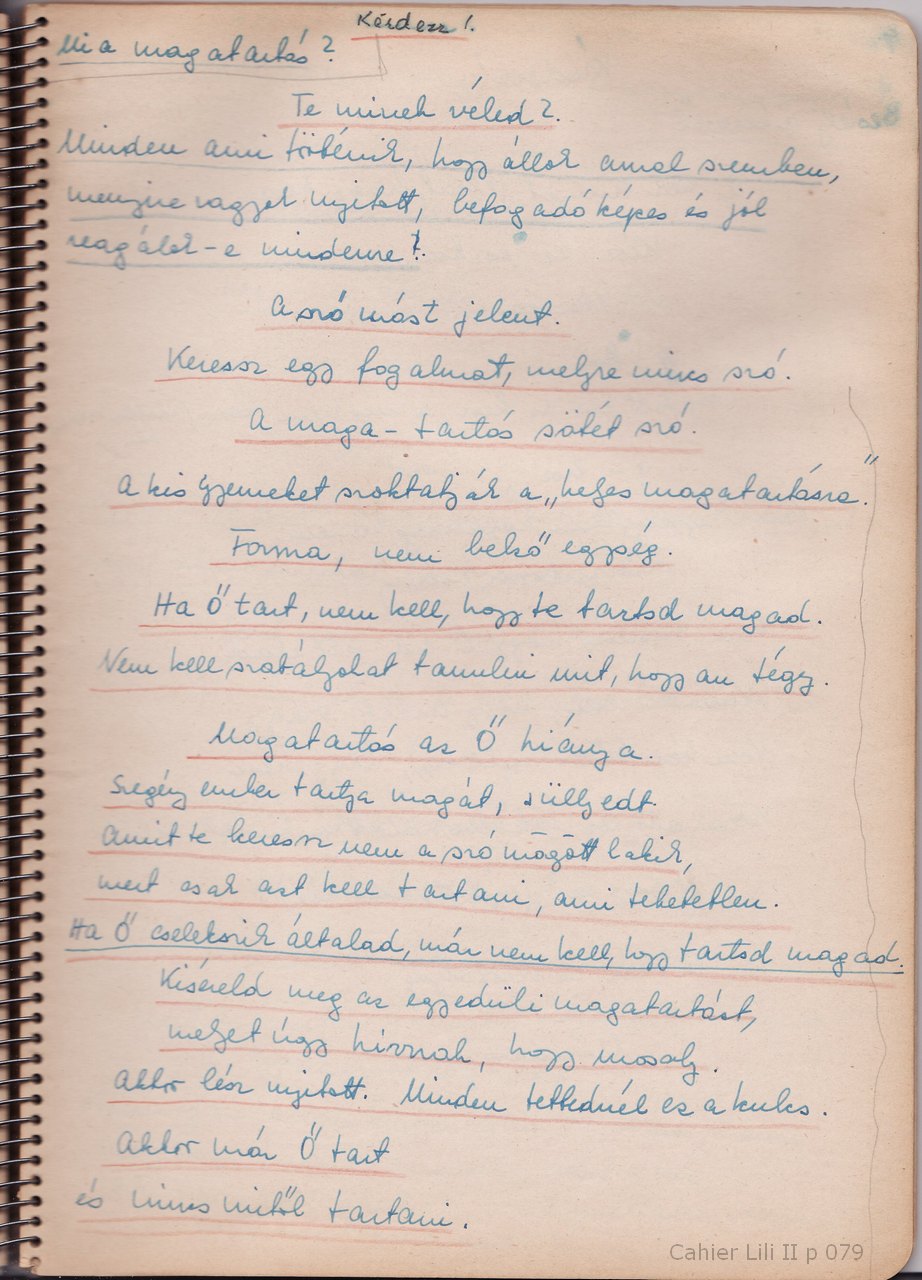 Kérdezz!
Mi a magatartás?
Te minek véled?
Minden ami történik, hogy állok amal szemben,
menyire vagyok nyitott, befogadó képes és jól
reagálok-e mindenre?
A szó mást jelent.
Keressz egy fogalmat, melyre nincs szó.
A maga-tartás sötét szó.
A kis gyemeket szoktatják a „helyes magatartásra."
Forma, nem belső egység.
Ha Ő tart, nem kell, hogy te tartsd magad.
Nem kell szabályokat tanulni mit, hogyan tégy.
Magatartás az Ő hiánya.
Szegény ember tartja magát, süllyedt.
Amit te keressz nem a szó mögött lakik,
mert csak azt kell tartani, ami tehetetlen.
Ha Ő cselekszik általad, már nem kell, hogy tartsd magad.
Kiséreld meg az egyedüli magatartást,
melyet úgy hívnak, hogy mosoly.
Akkor lész nyitott. Minden tettednél ez a kulcs.
Akkor már Ő tart
és nincs mitől tartani.
Cahier Lili II p 079